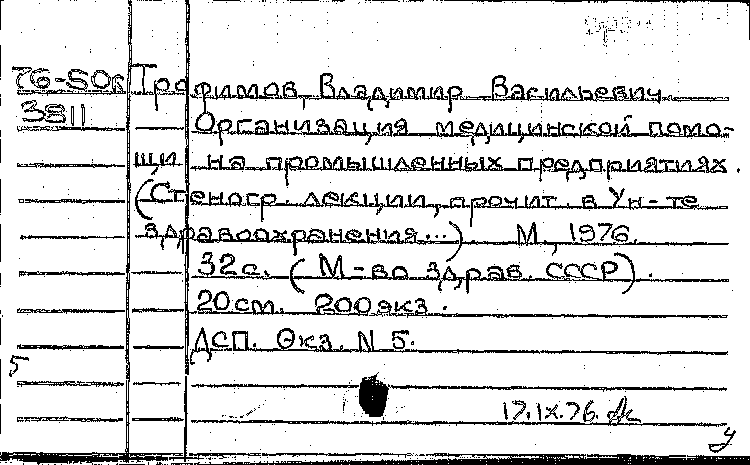 76-50к Трофимов, Владимир Васильевич
3811
Организация медицинской помо-
щи на промышленных предприятиях.
(Стеногр. лекции, прочит. в Ун-те
здравоохранения...). М., 1976.
32с. (М-во здрав. СССР).
20см. 200экз.
ДСП. Экз. N 5.
5
17.IX.76.
у